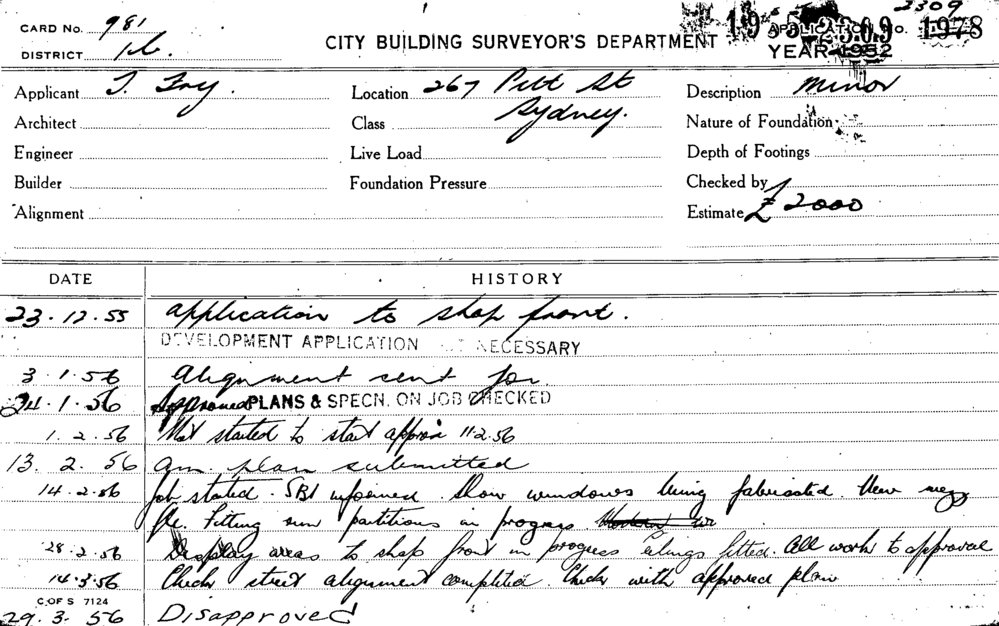 2309
CARD No. 981
DISTRICT
CITY BUILDING SURVEYOR'S DEPARTMENT
APPLICATION No. 1978
YEAR 1952
Applicant
Location 267 Pitt St
Sydney.
Description Minor
Architect
Class
Nature of Foundation
Engineer
Live Load
Depth of Footings
Builder
Foundation Pressure
Checked by
Alignment
Estimate £ 2000
DATE HISTORY
23.12.55 Application to shop front.
DEVELOPMENT APPLICATION NECESSARY
3.1.56 Alignment sent for
24.1.56 Approved PLANS & SPECN. ON JOB CHECKED
1.2.56 Not started to start approx 11.2.56
13.2.56 Am. plan submitted
14.2.56 Job started. SBI informed. Show windows being fabricated. New mezz
fl. Fitting new partitions in progress
28.2.56 Display areas to shop front in progress fitted. All work to approval
14.3.56 Check street alignment completed. Check with approved plan
C.OF S 7124
29.3.56 Disapproved